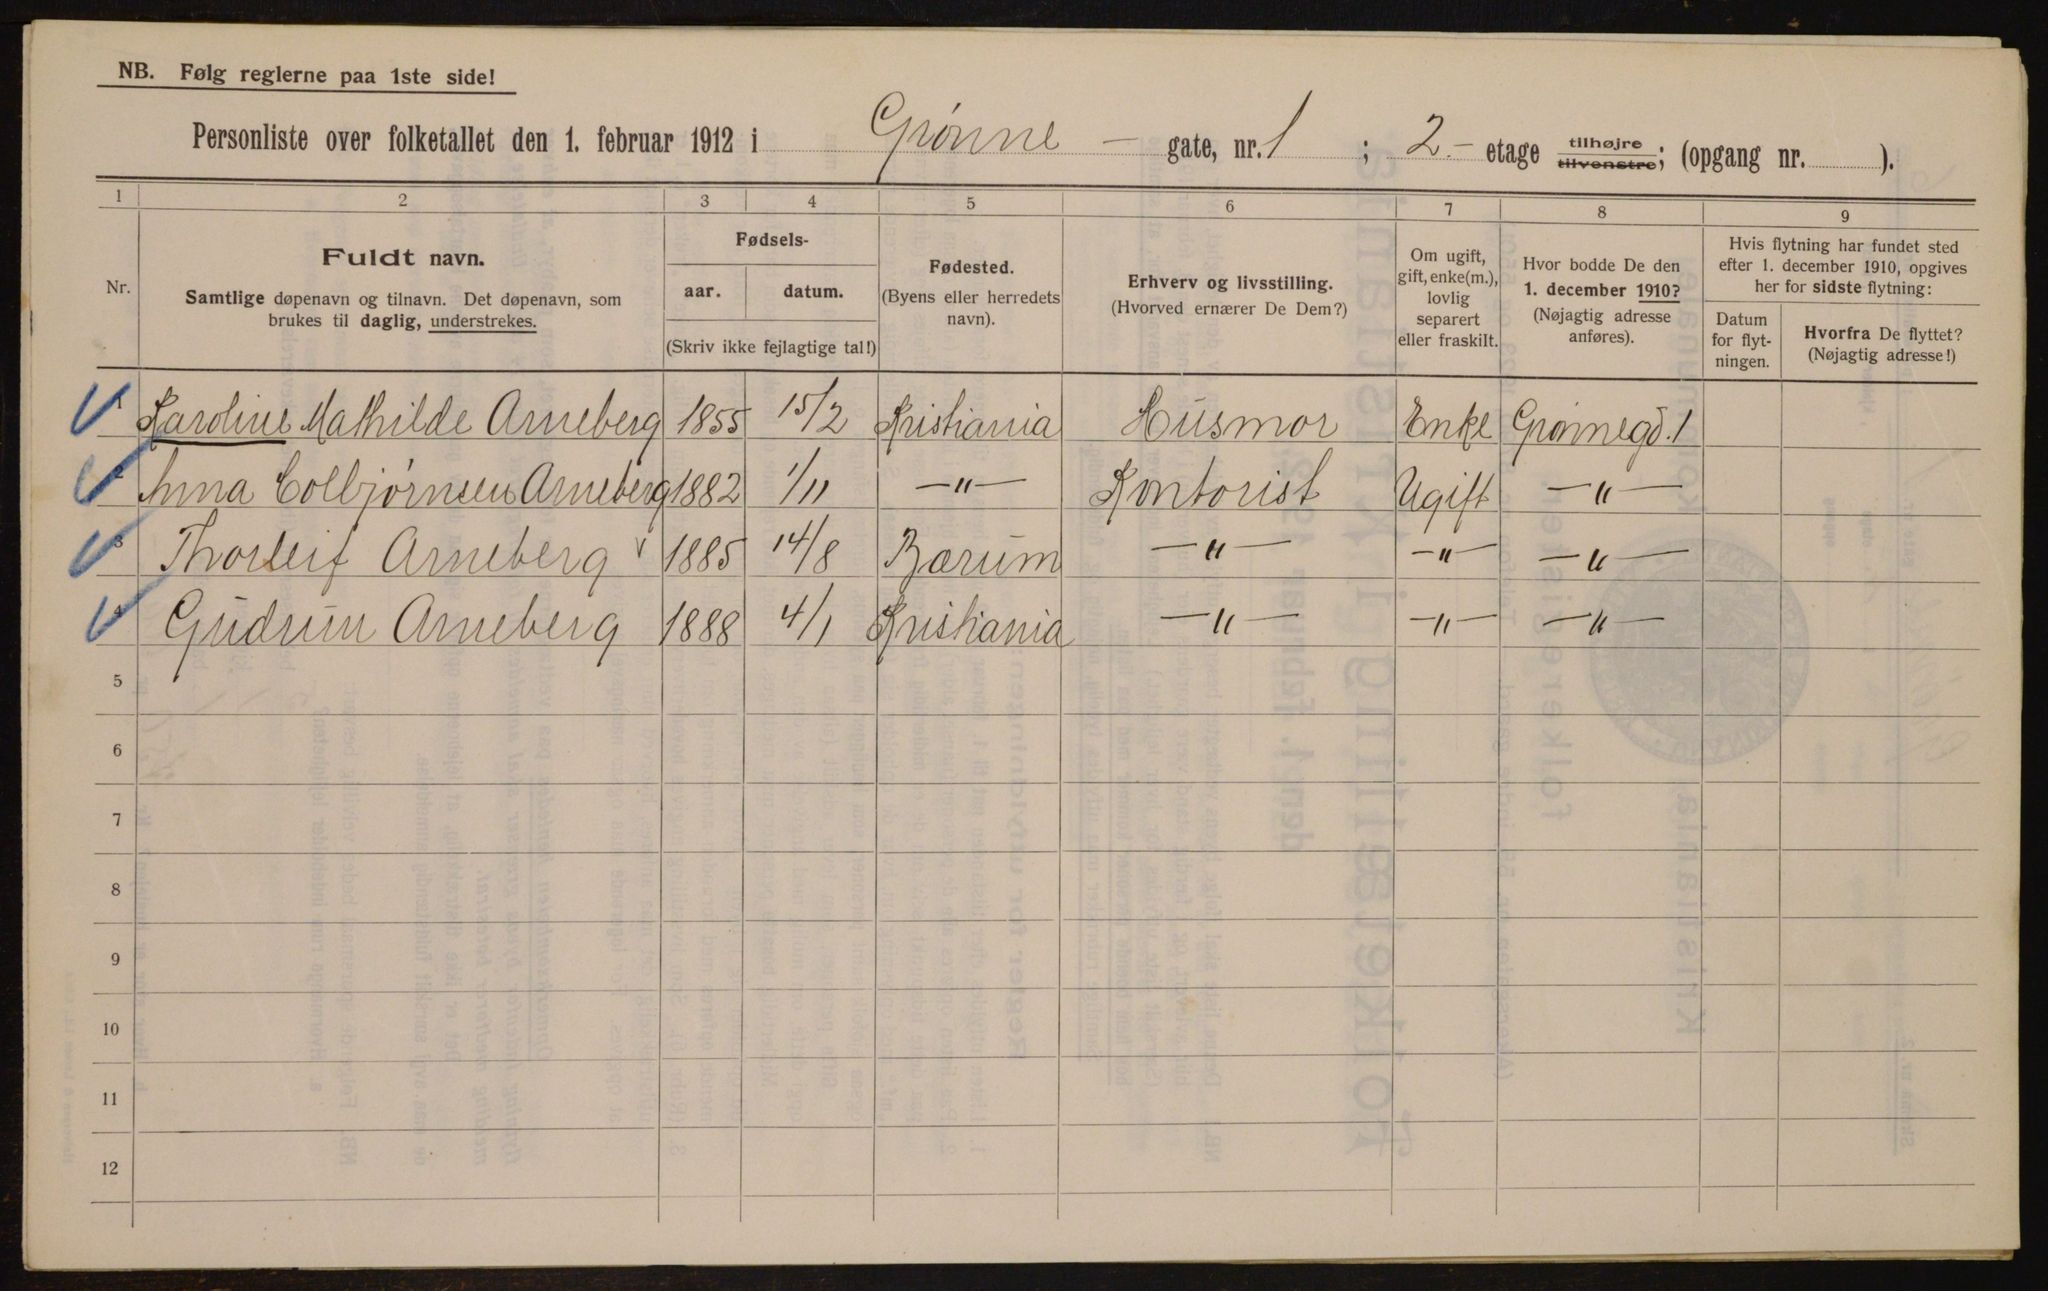 NB. Følg reglerne paa 1ste side!
Personliste over folketallet den 1. februar 1912 i Grønne - gate, nr. 1 ; 2.- etage tilhøjre tilvenstre; (opgang nr. ).
1 2 3 4 5 6 7 8 9
Nr.
Fuldt navn.
Samtlige døpenavn og tilnavn. Det døpenavn, som
brukes til daglig, understrekes.
Fødsels-
aar. datum.
(Skriv ikke fejlagtige tal!)
Fødested.
(Byens eller herredets
navn).
Erhverv og livsstilling.
(Hvorved ernærer De Dem?)
Om ugift,
gift, enke(m.),
lovlig
separert
eller fraskilt.
Hvor bodde De den
1. december 1910?
(Nøjagtig adresse
anføres).
Hvis flytning har fundet sted
efter 1. december 1910, opgives
her for sidste flytning:
Datum
for flyt-
ningen.
Hvorfra De flyttet?
(Nøjagtig adresse!)
1 Karoline Mathilde Arneberg 1855 15/2 Kristiania Husmor Enke Grønnegd. 1
2 Anna Colbjørnsen Arneberg 1882 1/11 —"— Kontorist Ugift —"—
3 Thorleif Arneberg v 1885 14/8 Bærum —"— —"— —"—
4 Gudrun Arneberg 1888 4/1 Kristiania —"— —"— —"—
5
6
7
8
9
10
11
12